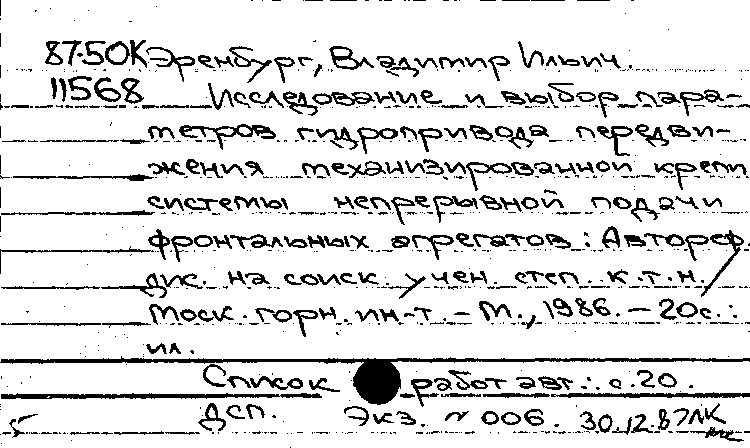 87-50К Эренбург, Владимир Ильич.
11568 Исследование и выбор пара-
метров гидропривода передви-
жения механизированной крепи
системы непрерывной подачи
фронтальных агрегатов: Автореф.
дис. на соиск. учен. степ. к.т.н./
Моск. горн. ин-т. - М., 1986. - 20с.:
ил.
Список работ авт.: с.20.
ДСП. Экз. № 006. 30.12.87ЛК